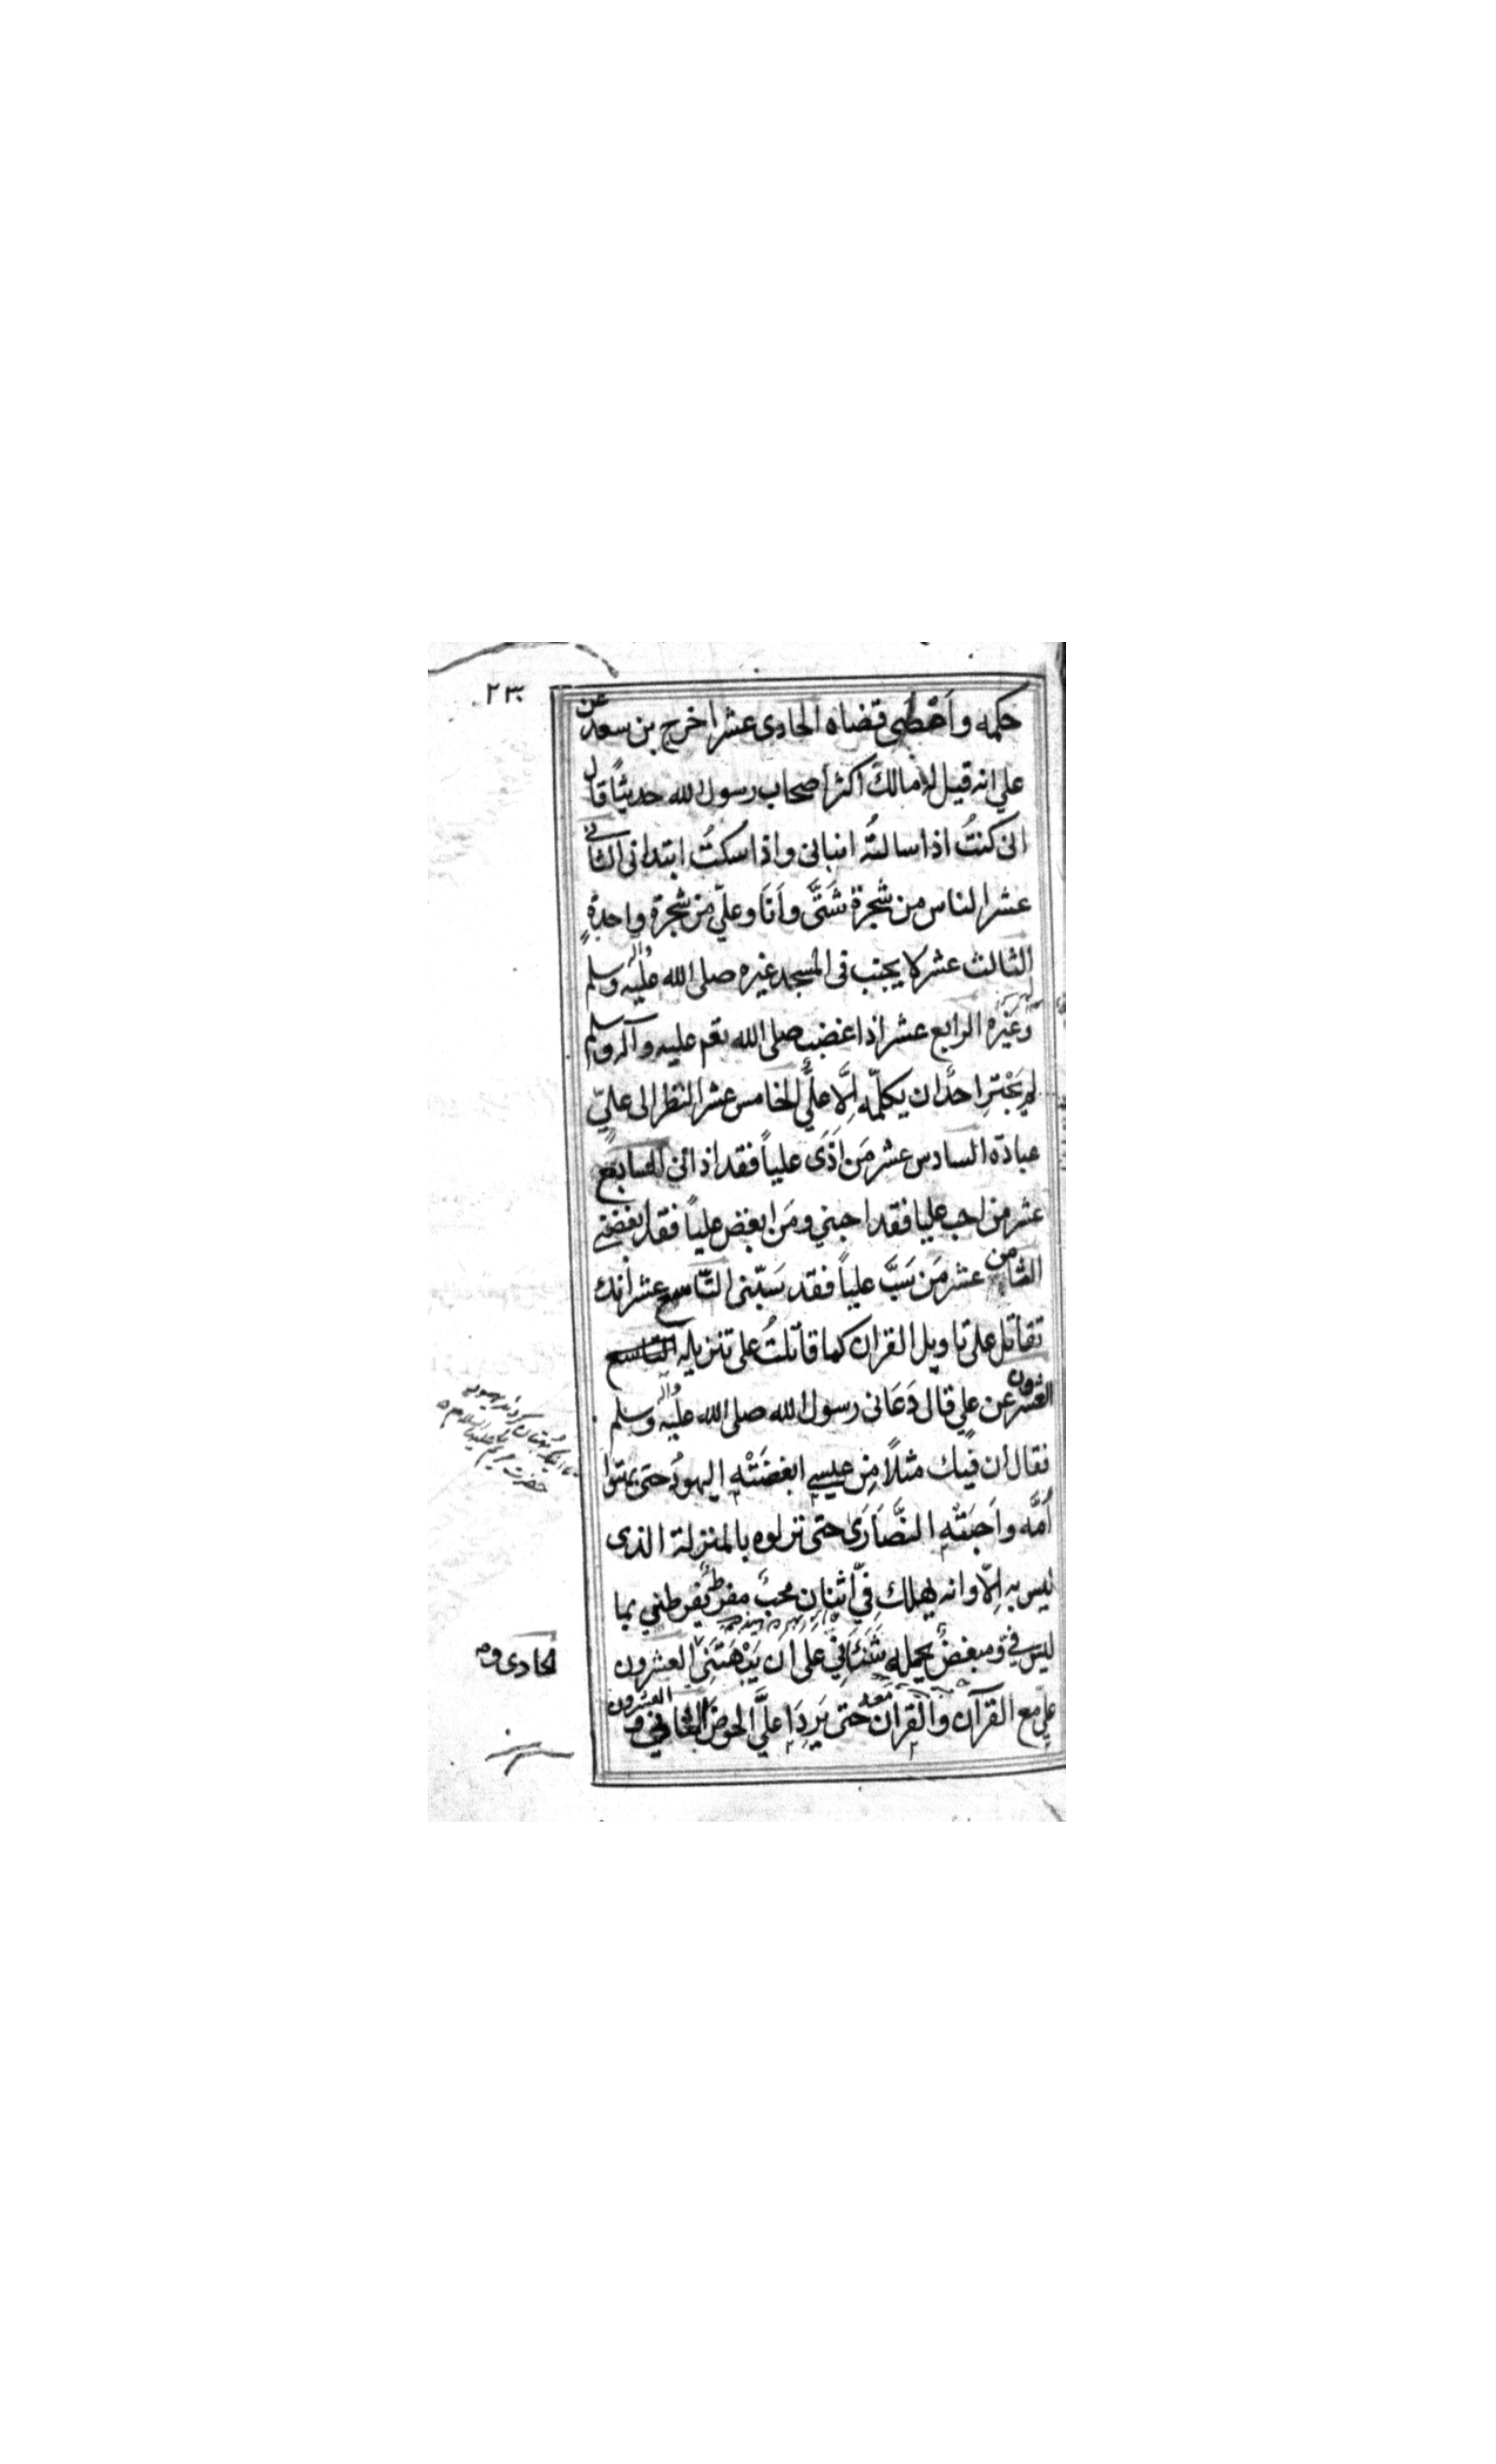 ٢٣
حكمه واخطى قضاه الحادى عشر اخرج بن سعد عن
علي انه قيل له مالك اكثر اصحاب رسول الله حديثاً قال
انى كنتُ اذا سالتُه انبانى واذا سكتُ ابتدانى الثانى
عشر الناس من شجرة شَتَّى واَنَا وعليّ من شجرة واحدةٍ
الثالث عشر لا يجنب فى المسجد غيره صلى الله عليه واله وسلم
وَغيره الرابع عشر اذا غضب صلى الله تعم عليه وآله وسلم
لم يَجْترِ احدٌ ان يكلّمه اِلَّا عليٌّ الخامس عشر النظر الى عليّ
عبادة السادس عشر مَن اَذَى علياً فقد اذانى السابع
عشر من احب عليا فقد احبني ومَن ابغض علياً فقد ابغضني
الثامن عشر مَن سَبَّ علياً فقد سَبّنى التّاسع عشر انك
تقاتل على تاويل القران كما قاتلتُ على تنزيله التاسع
العشرون عن علي قال دَعَانى رسول الله صلى الله عليه واله وسلم
فقال ان فيك مثلاً مِن عيسى ابغضَتْه اليهودُ حتى بهتوا
اُمَّه واَحبَتْه النَّصَارَى حتى نزلوه بالمنزلة الذى
ليس به اِلّا وانه يهلك فِيَّ اثنان محبٌ مفرطٌ يُفرطني بما
ليس فيّ ومبغضٌ يحمله شَنَئَانِي عَلَى اَن يَبْهَتَنِي العشرون
علي مع القرآن والقران معه حتى يَرِدَا عليَّ الحوض الثانى و العشرون
حضرت مريم عليها السلام
الحادى و